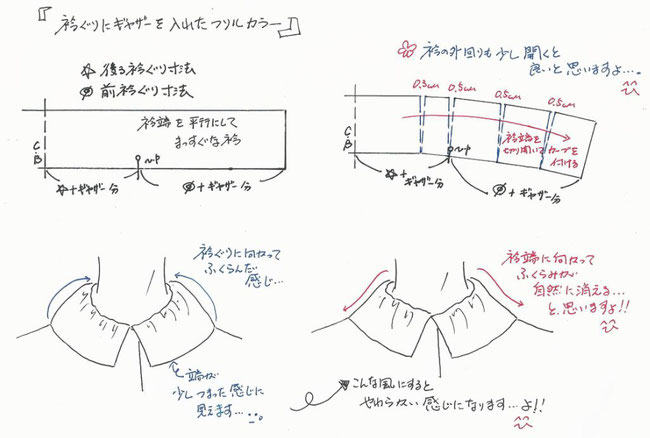 『衿ぐりにギャザーを入れたフリルカラー』
☆後ろ衿ぐり寸法
∅前衿ぐり寸法
衿端を平行にして
まっすぐな衿
C.B
N.P
☆+ギャザー分
∅+ギャザー分
衿の外回りも少し開くと
良いと思いますよ…。
0.3cm
0.5cm
0.5cm
0.5cm
衿端を
切り開いて
カーブを
付ける
C.B
N.P
☆+
ギャザー分
∅+ギャザー分
衿ぐりに向かって
ふくらんだ
感じ…
端が
少しつまった感じに
見えます…。
衿端に向かって
ふくらみが
自然に消える…
と思いますよ!!
こんな風にすると
やわらかい感じになります…よ!!